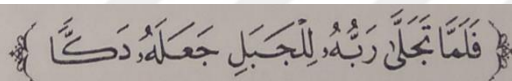 ﴿فَلَمَّا تَجَلَّىٰ رَبُّهُۥ لِلْجَبَلِ جَعَلَهُۥ دَكًّا﴾